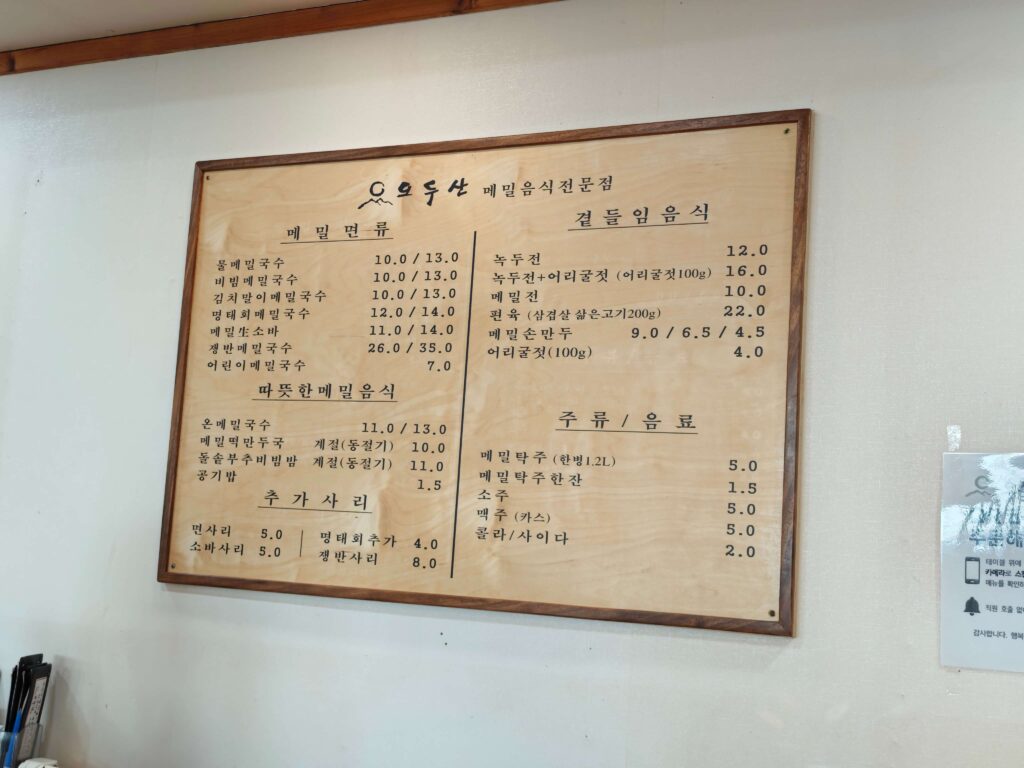 오두산 메밀음식전문점
메밀면류
물메밀국수 10.0 / 13.0
비빔메밀국수 10.0 / 13.0
김치말이메밀국수 10.0 / 13.0
명태회메밀국수 12.0 / 14.0
메밀生소바 11.0 / 14.0
쟁반메밀국수 26.0 / 35.0
어린이메밀국수 7.0
따뜻한메밀음식
온메밀국수 11.0 / 13.0
메밀떡만두국 계절(동절기) 10.0
돌솥부추비빔밤 계절(동절기) 11.0
공기밥 1.5
추가사리
면사리 5.0
소바사리 5.0
명태회추가 4.0
쟁반사리 8.0
곁들임음식
녹두전 12.0
녹두전+어리굴젓 (어리굴젓100g) 16.0
메밀전 10.0
편육 (삼겹살 삶은고기200g) 22.0
메밀손만두 9.0 / 6.5 / 4.5
어리굴젓(100g) 4.0
주류 / 음료
메밀탁주 (한병1.2L) 5.0
메밀탁주한잔 1.5
소주 5.0
맥주 (카스) 5.0
콜라/사이다 2.0
테이블 위에
카메라로
메뉴를
직원 호출
감사합니다.